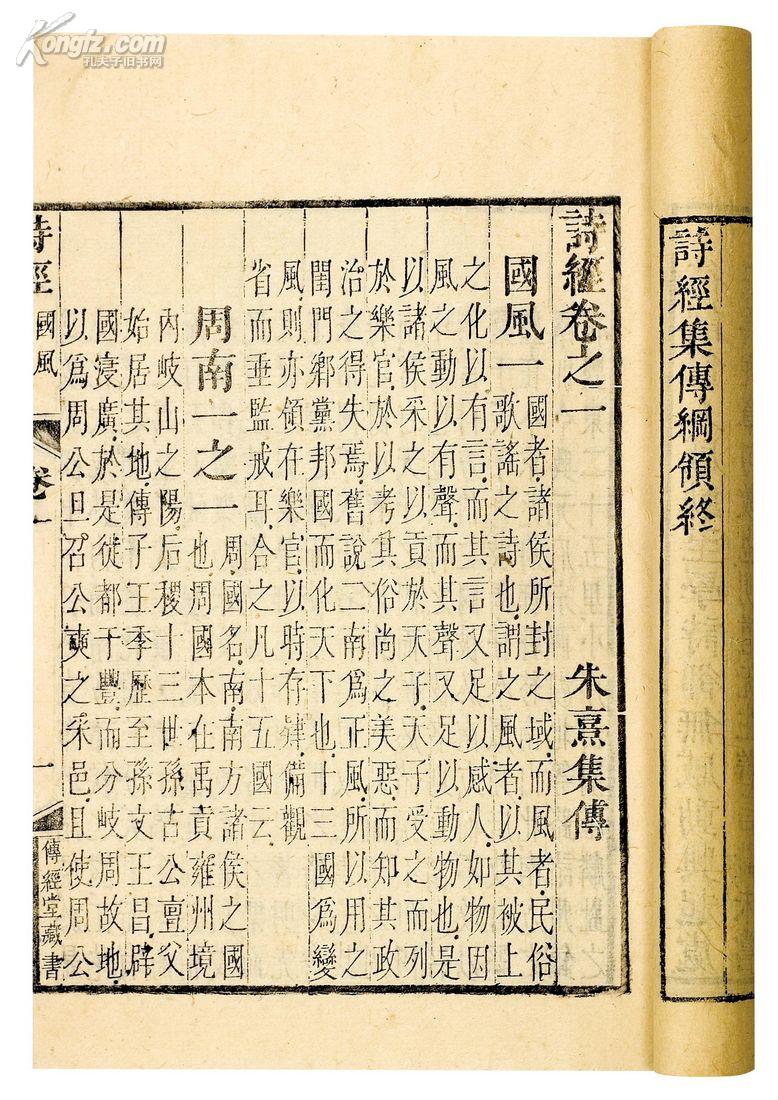 Kongfz.com
孔夫子旧书网
詩經集傳綱領終
詩經卷之一 朱熹集傳
國風一
國者諸侯所封之域而風者民俗
歌謠之詩也謂之風者以其被上
之化以有言而其言又足以感人如物因
風之動以有聲而其聲又足以動物也是
以諸侯采之以貢於天子天子受之而列
於樂官於以考其俗尚之美惡而知其政
治之得失焉舊說二南爲正風所以用之
閨門鄉黨邦國而化天下也十三國爲變
風則亦領在樂官以時存肄備觀
省而垂監戒耳合之凡十五國云
周南一之一
周國名南南方諸侯之國
也周國本在禹貢雍州境
內岐山之陽后稷十三世孫古公亶父
始居其地傳子王季歷至孫文王昌辟
國寖廣於是徙都于豐而分岐周故地
以爲周公旦召公奭之采邑且使周公
詩經 國風 卷一 一 傳經堂藏書